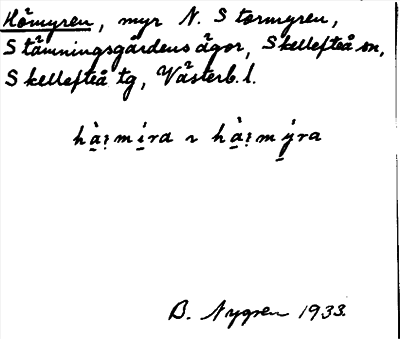 Hömyren, myr N. Stormyren,
Stämningsgårdens ägor, Skellefteå sn,
Skellefteå tg, Västerb. l.
hà̤:mí̱ra ~ hà̤:mý̱ra
B. Nygren 1933.